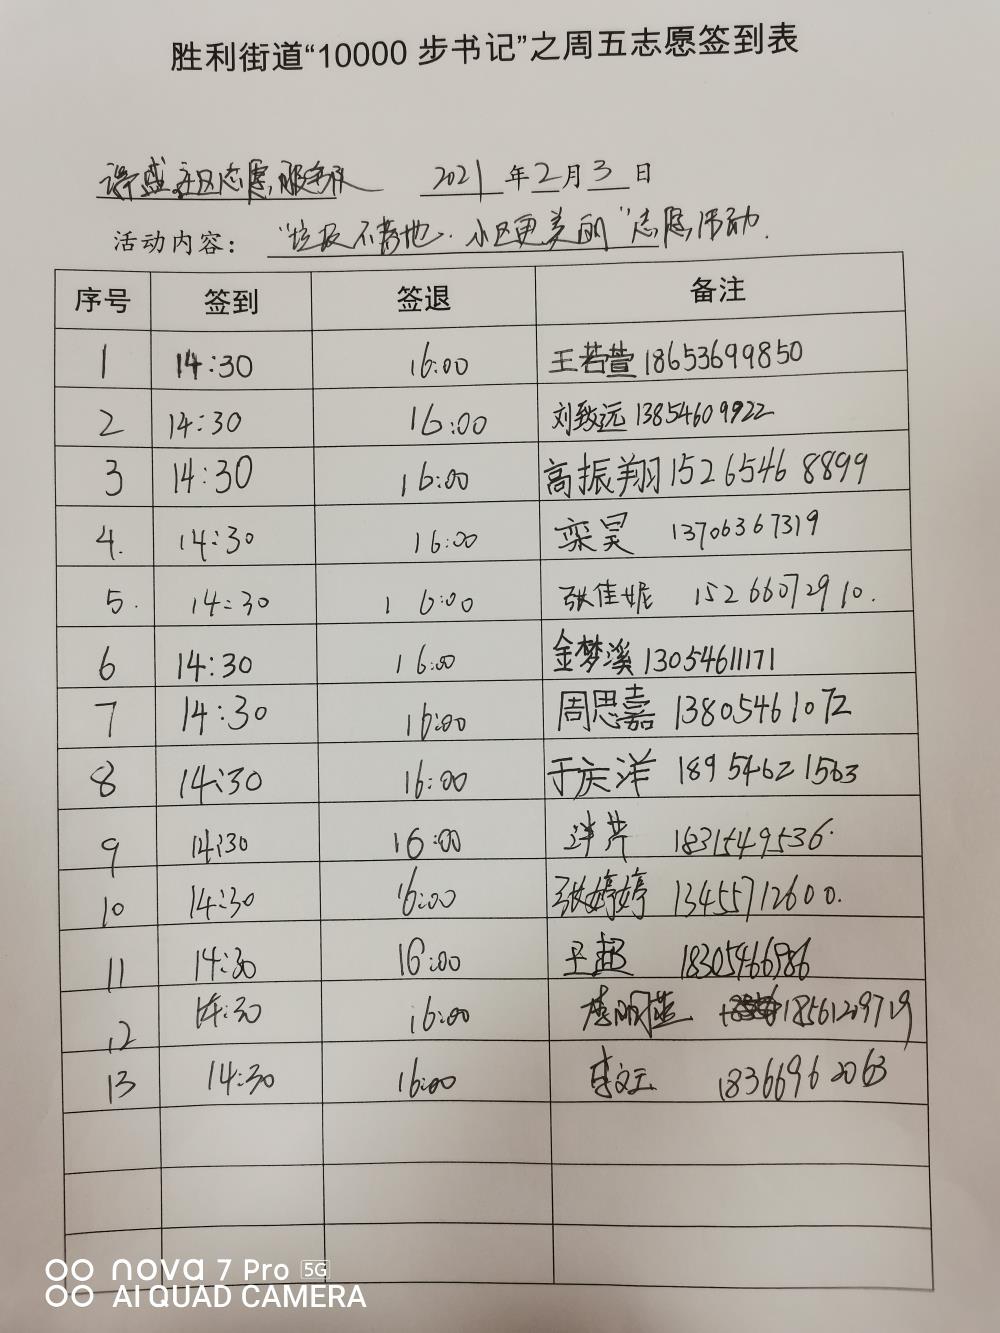 胜利街道“10000 步书记”之周五志愿签到表
盛社区志愿服务队 2021 年 2 月 3 日
活动内容： “垃圾不落地·小区更美丽”志愿活动.
序号 签到 签退 备注
1 14:30 16:00 王若萱 18653699850
2 14:30 16:00 刘致远 13854609922
3 14:30 16:00 高振翔 15265468899
4. 14:30 16:00 栾昊 13706367319
5. 14:30 16:00 张佳妮 15266072910.
6 14:30 16:00 金梦溪 13054611171
7 14:30 16:00 周思嘉 13805461072
8 14:30 16:00 于庆洋 18954621563
9 14:30 16:00 1831549536
10 14:30 16:00 张婷婷 13455712600.
11 14:30 16:00 王超 18305466986
12 14:30 16:00 李丽 18561209719
13 14:30 16:00 李文云 18366962063
nova 7 Pro 5G
AI QUAD CAMERA